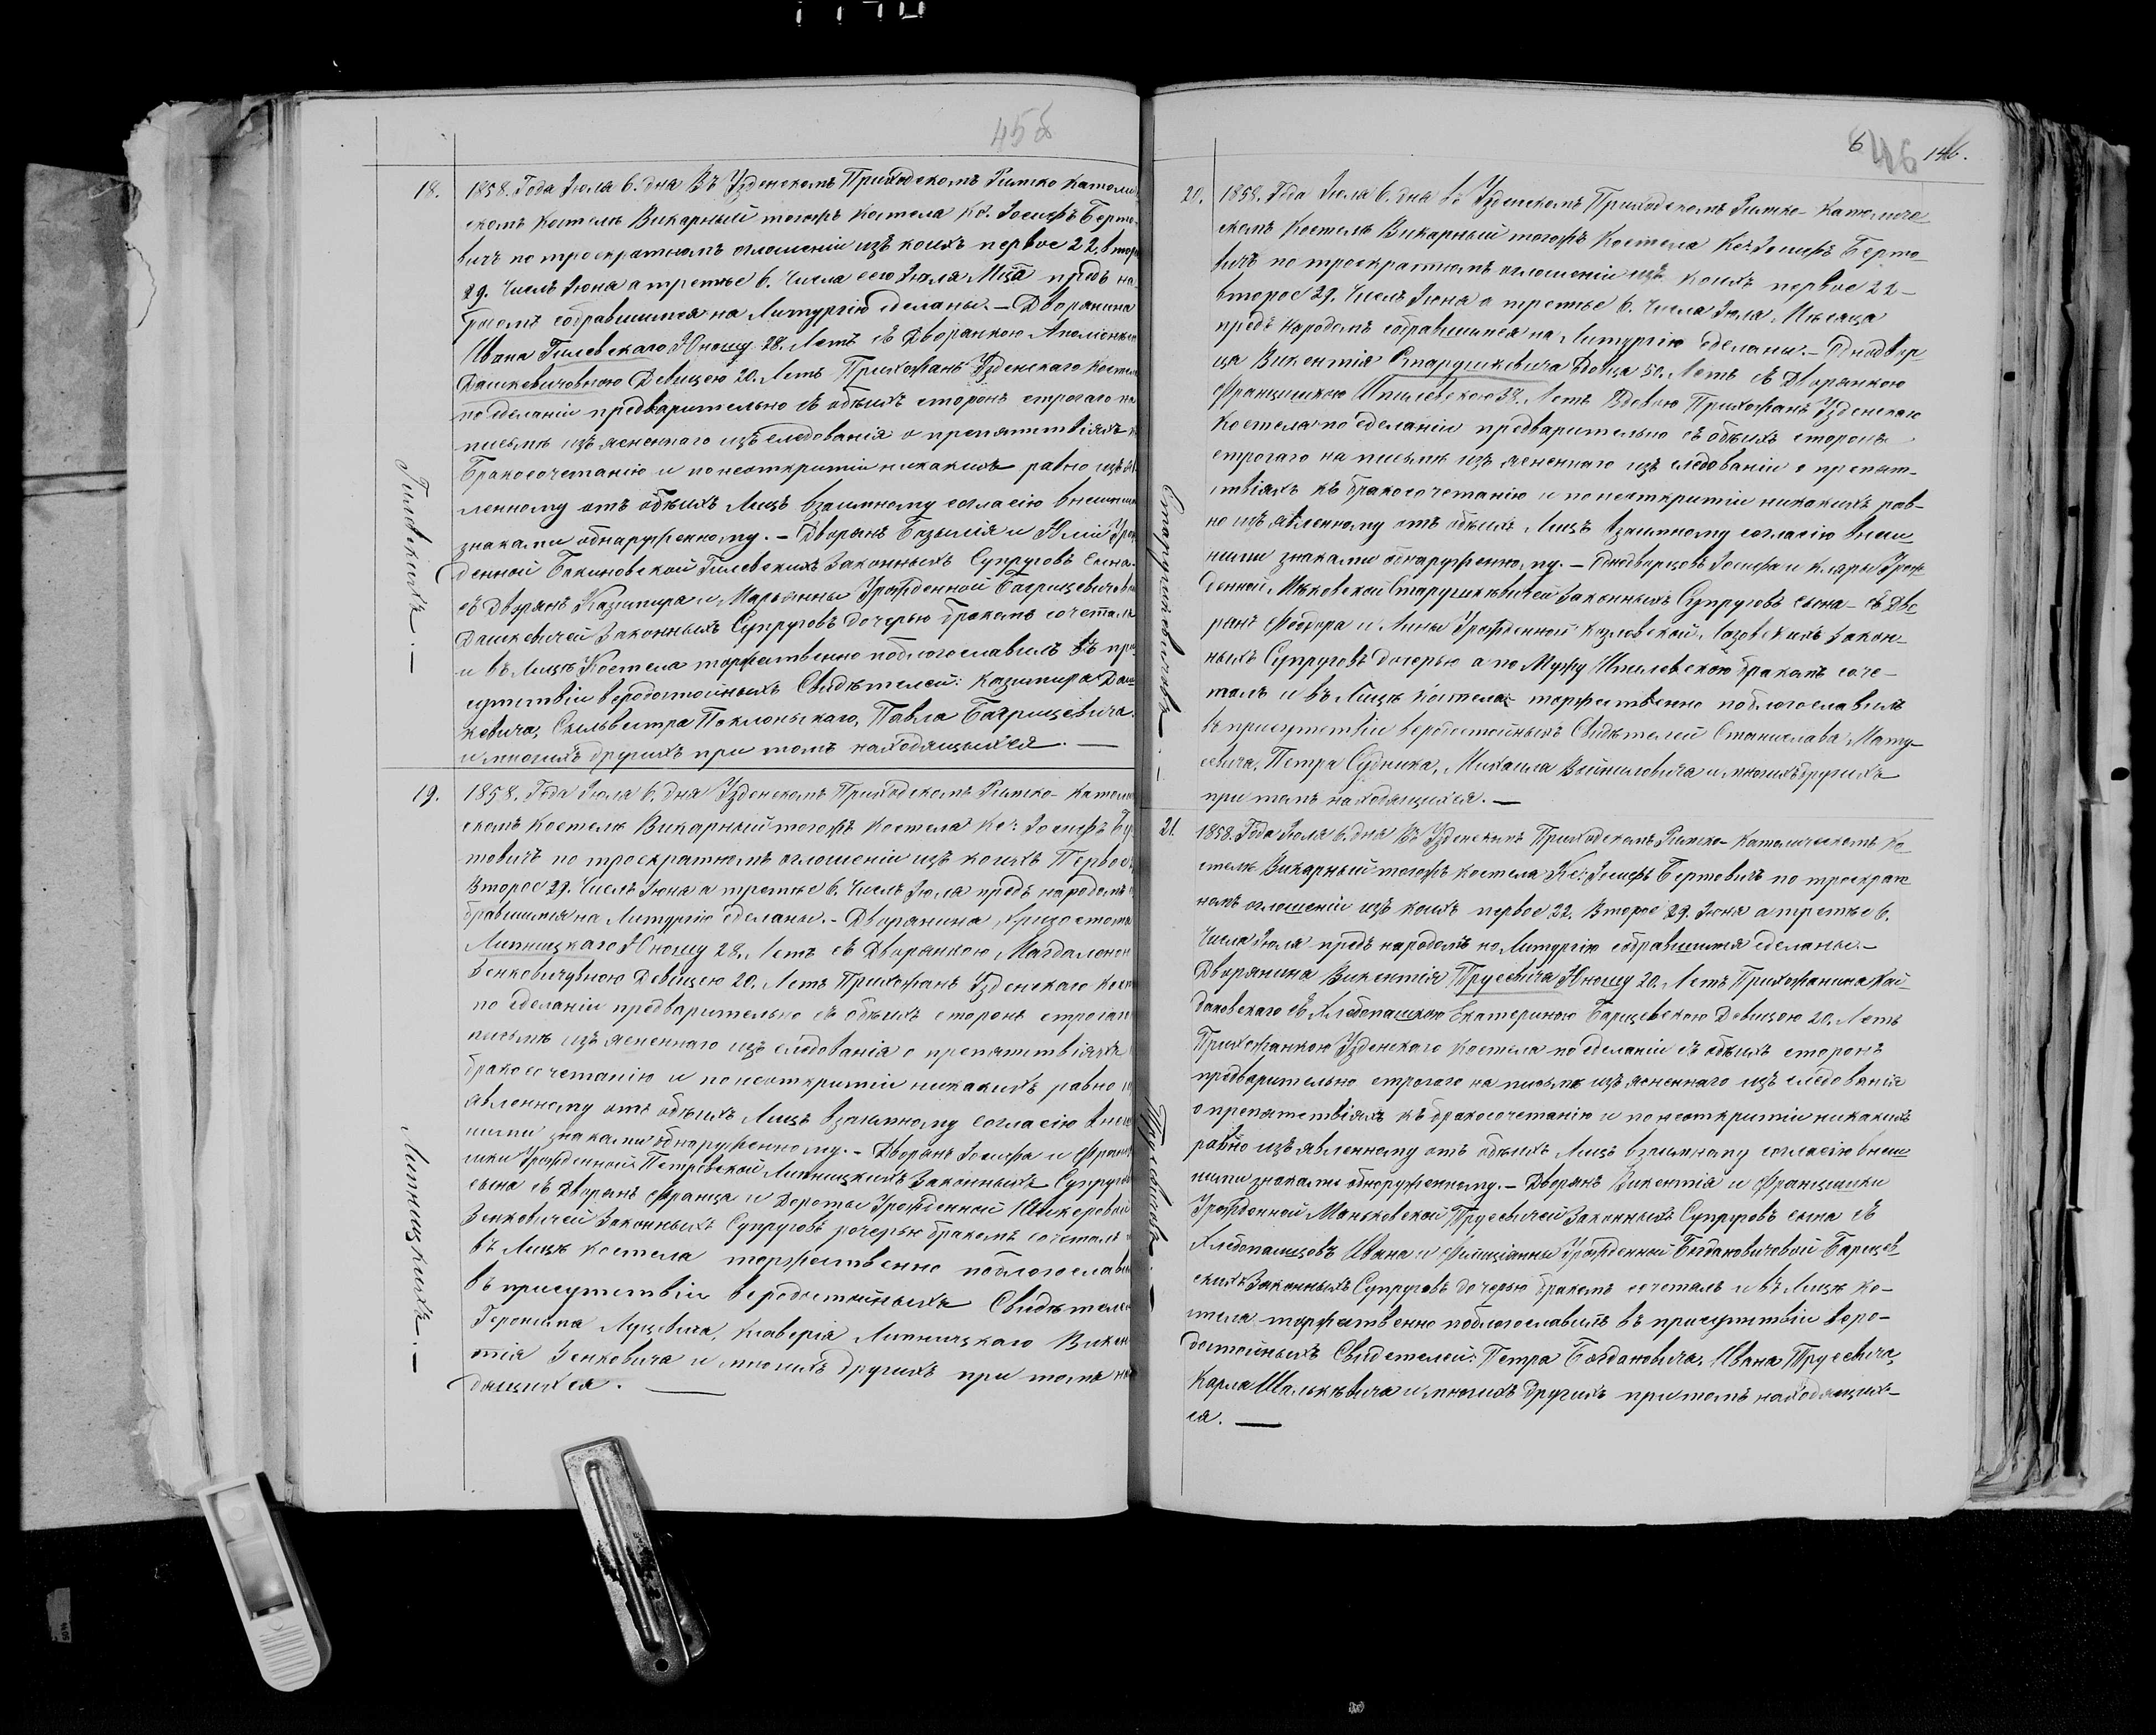 45б
18.
1858. Года Іюля 6. дня Въ Узденскомъ Приходскомъ Римско Католи
скомъ Костелѣ Викарный тогожъ Костела Кс. Іосифъ Берто
вичъ по троекратномъ оглошеніи изъ коихъ первое 22, втор
29. Числъ Іюня а третье 6. Числа сего Іюля Мца предъ на
родомъ собравшимся на Литургію сделаны. — Дворянина
Ивана Гилевскаго Юношу 28. Летъ съ Дворянкою Аполіоніею
Дашкевичовною Девицею 20. Летъ Прихожанъ Узденскаго Костел
по сделаніи предварительно съ обѣихъ сторонъ строгаго на
письмѣ изъясненнаго изъследованія о препятствіяхъ к
Бракосочетанію и по неоткрытіи никакихъ равно изъяв
ленному отъ обѣихъ Лицъ взаимному согласію внешними
знаками обнаруженному. — Дворянъ Базылія и Юліи Урож
денной Бакиновской Гилевскихъ Законныхъ Супруговъ сына.
съ Дворянъ Казимира и Марьянны Урожденной Багрицевичов
Дашкевичей Законныхъ Супруговъ дочерью бракомъ сочеталъ
и въ Лицѣ Костела торжественно поблогославилъ въ при
сутствіи веродостойныхъ Свидѣтелей: Казимира Даш
кевича, Сыльвестра Поклонскаго, Павла Багрицевича
и многихъ другихъ при томъ находящыхся. —
Гилевскихъ. —
19.
1858. Года Іюля 6. дня Узденскомъ Приходскомъ Римско-Католи
скомъ Костелѣ Викарный тогожъ Костела Кс: Іосифъ Бер
товичъ по троекратномъ оглошеніи изъ коихъ Первое
Второе 29. Числъ Іюня а третье 6. Числъ Іюля предъ народомъ
бравшимся на Литургію сделаны. — Дворянина Хризостома
Липницкаго Юношу 28. Летъ съ Дворянкою Магдаленою
Зенковичувною Девицею 20. Летъ Прихожанъ Узденскаго Кост
по сделаніи предварительно съ обѣихъ сторонъ строгаго
письмѣ изъясненнаго изъследованія о препятствіяхъ
бракосочетанію и по неоткрытіи никакихъ равно и
явленному отъ обѣихъ Лицъ взаимному согласію внеш
ними знаками обнаруженному. — Дворянъ Іосифа и Фран
ишки Урожденной Петровской Липницкихъ Законныхъ Супругов
сына съ Дворянъ Франца и Дороты Урожденной
Зенковичей Законныхъ Супруговъ дочерью бракомъ сочеталъ
въ Лицѣ Костела торжественно поблогослави
въ присутствіи веродостойныхъ Свидѣтелей
Геронима Луцевича, Ксаверія Липницкаго Викен
тія Зенковича и многихъ другихъ при томъ нах
дящихся. —
Липницкихъ. —
6 46 146.
20.
1858. Года Іюля 6. дня въ Узденскомъ Приходскомъ Римско-Католиче
скомъ Костелѣ Викарный тогожъ Костела Кс: Іосифъ Берто-
вичъ по троекратномъ оглошеніи изъ коихъ первое 22 —
второе 29. Числъ Іюня а третье 6. Числа Іюля Мѣсяца
предъ народомъ собравшимся на Литургію сделаны. — Однодвор
ца Викентія Старушкевича Вдовца 50. Летъ съ Дворянкою
Францишкою Шпилевскою 38. Летъ Вдовою Прихожанъ Узденскаго
Костела по сделаніи предварительно съ обѣихъ сторонъ
строгаго на письмѣ изъясненнаго изъследованіи о препят-
ствіяхъ къ бракосочетанію и по неоткрытіи никакихъ рав-
но изъявленному отъ обѣихъ Лицъ взаимному согласію внеш
ними знаками обнаруженному. — Однодворцовъ Іосифа и Клары Урож
денной Мѣховской Старушкѣвичей Законныхъ Супруговъ сына — съ Дво
рянъ Феодора и Анны Урожденной Козловской Лазовскихъ Закон-
ныхъ Супруговъ дочерью а по Мужу Шпилевскою бракомъ соче-
талъ и въ Лицѣ Костела торжественно поблогославилъ
въ присутствіи веродостойныхъ Свидѣтелей Станислава Мату-
севича, Петра Судника, Михаила Войниловича и многихъ другихъ
при томъ находящихся. —
Старушкевичовъ. —
21.
1858. Года Іюля 6. дня Въ Узденскомъ Приходскомъ Римско-Католическомъ Ко
стелѣ Викарный тогожъ костела Кс: Іосифъ Бертовичъ по троекрат
номъ оглошеніи изъ коихъ первое 22. Второе 29. Іюня а третье 6.
Числа Іюля предъ народомъ на Литургію собравшимся сделаны. —
Дворянина Викентія Трусевича Юношу 20. Летъ Прихожанина Кой
дановскаго съ Хлебопашкою Екатериною Барщевскою Девицою 20. Летъ
Прихожанкою Узденскаго Костела по сделаніи съ обѣихъ сторонъ
предварительно строгаго на письмѣ изъясненнаго изъследованія
о препятствіяхъ къ бракосочетанію и по неоткрытіи никакихъ
равно изъявленному отъ обѣихъ Лицъ взаимному согласію внеш
ними знаками обноруженному. — Дворянъ Викентія и Францишки
Урожденной Маньковской Трусевичей Законныхъ Супруговъ сына съ
Хлебопашцовъ Ивана и Фелиціанны Урожденной Богдановичовой Барщев
скихъ Законныхъ Супруговъ дочерью бракомъ сочеталъ и въ Лицѣ Ко-
стела торжественно поблогославилъ въ присутствіи веро-
достойныхъ Свидетелей: Петра Богдановича, Ивана Трусевича,
Карла Шалькѣвича и многихъ другихъ при томъ находящих-
ся. —
Трусевичовъ. —